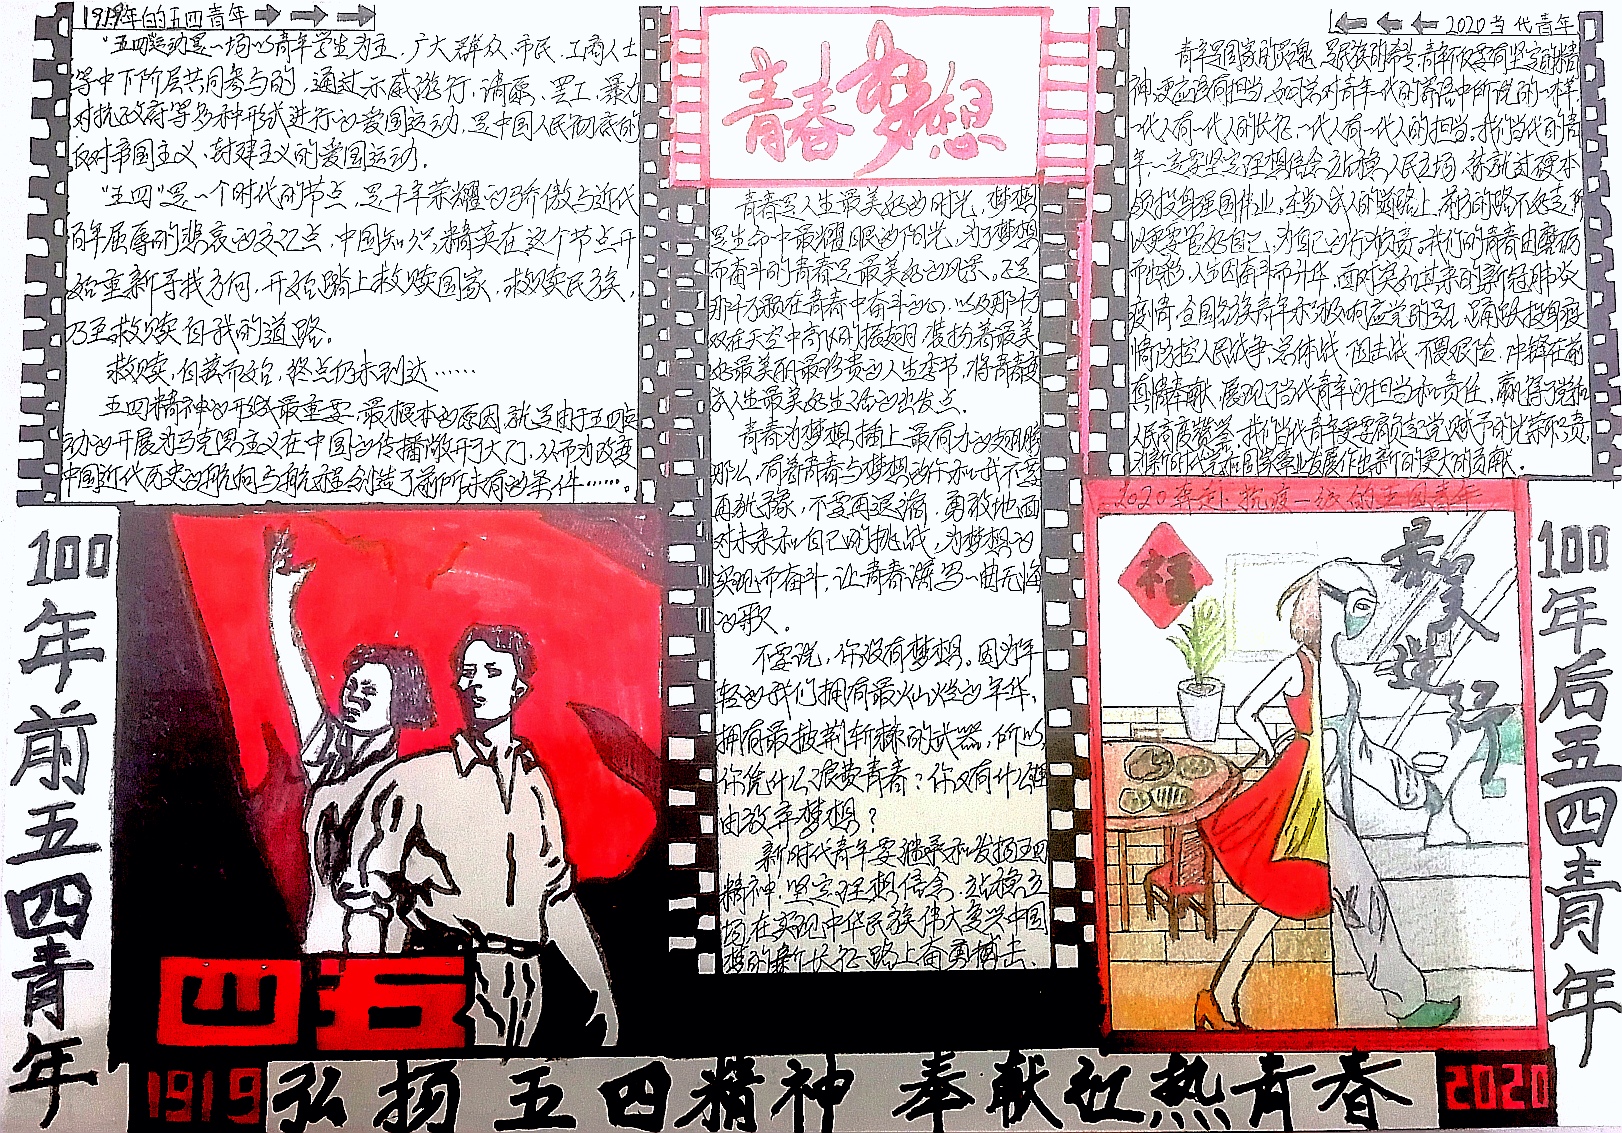 1919年的五四青年
"五四运动是一场以青年学生为主,广大群众、市民、工商人士
等中下阶层共同参与的,通过示威游行、请愿、罢工、暴力
对抗政府等多种形式进行的爱国运动,是中国人民彻底的
反对帝国主义、封建主义的爱国运动。
"五四"是一个时代的节点,是千年荣耀的骄傲与近代
百年屈辱的悲哀的交汇点,中国知识精英在这个节点开
始重新寻找方向,开始踏上救赎国家、救赎民族,
乃至救赎自我的道路。
救赎,自兹而始,终点仍未到达……
五四精神的形成最重要、最根本的原因,就是由于五四运
动的开展为马克思主义在中国的传播敞开了大门,从而为改变
中国近代历史的航向与航程创造了前所未有的条件……。
青春梦想
青春是人生最美好的时光,梦想
是生命中最耀眼的阳光,为了梦想
而奋斗的青春是最美好的风景。正是
那千万颗在青春中奋斗的心,以及那千万
双在天空中高飞的翅膀,装扮着最美
好最美丽最珍贵的人生季节,将青春变
成人生最美好生活的出发点。
青春为梦想插上最有力的翅膀
那么,有着青春与梦想的你和我不要
再犹豫,不要再退缩,勇敢地面
对未来和自己的挑战,为梦想的
实现而奋斗,让青春谱写一曲无悔
的歌。
不要说,你没有梦想。因为年
轻的我们拥有最灿烂的年华,
拥有最披荆斩棘的武器,所以,
你凭什么浪费青春?你又有什么理
由放弃梦想?
新时代青年要继承和发扬五四
精神,坚定理想信念,站稳立
场,在实现中华民族伟大复兴中国
梦的新长征路上奋勇搏击。
2020当代青年
青年是国家的灵魂,是民族的希望,青年不仅要有坚定的精
神,更应该有担当,如习总对青年一代的寄语中所说的一样,
一代人有一代人的长征,一代人有一代人的担当,我们当代的青
年,一定要坚定理想信念,站稳人民立场,练就过硬本
领,投身强国伟业,在当代人的道路上,前方的路不好走,所
以更要管好自己,为自己的行为负责。我们的青春由磨砺
而出彩,人生因奋斗而升华,面对突如其来的新冠肺炎
疫情,全国各族青年积极响应党的号召,踊跃投身疫
情防控人民战争、总体战、阻击战,不畏艰险、冲锋在前、
真情奉献,展现了当代青年的担当和责任,赢得了党和
人民高度赞誉。我们当代青年更要牢记党赋予的光荣职责,
为新时代党和国家事业发展作出新的更大的贡献。
2020奔赴抗疫一线的五四青年
福
最美逆行
100年前五四青年
100年后五四青年
五四
1919
弘扬五四精神 奉献炽热青春
2020